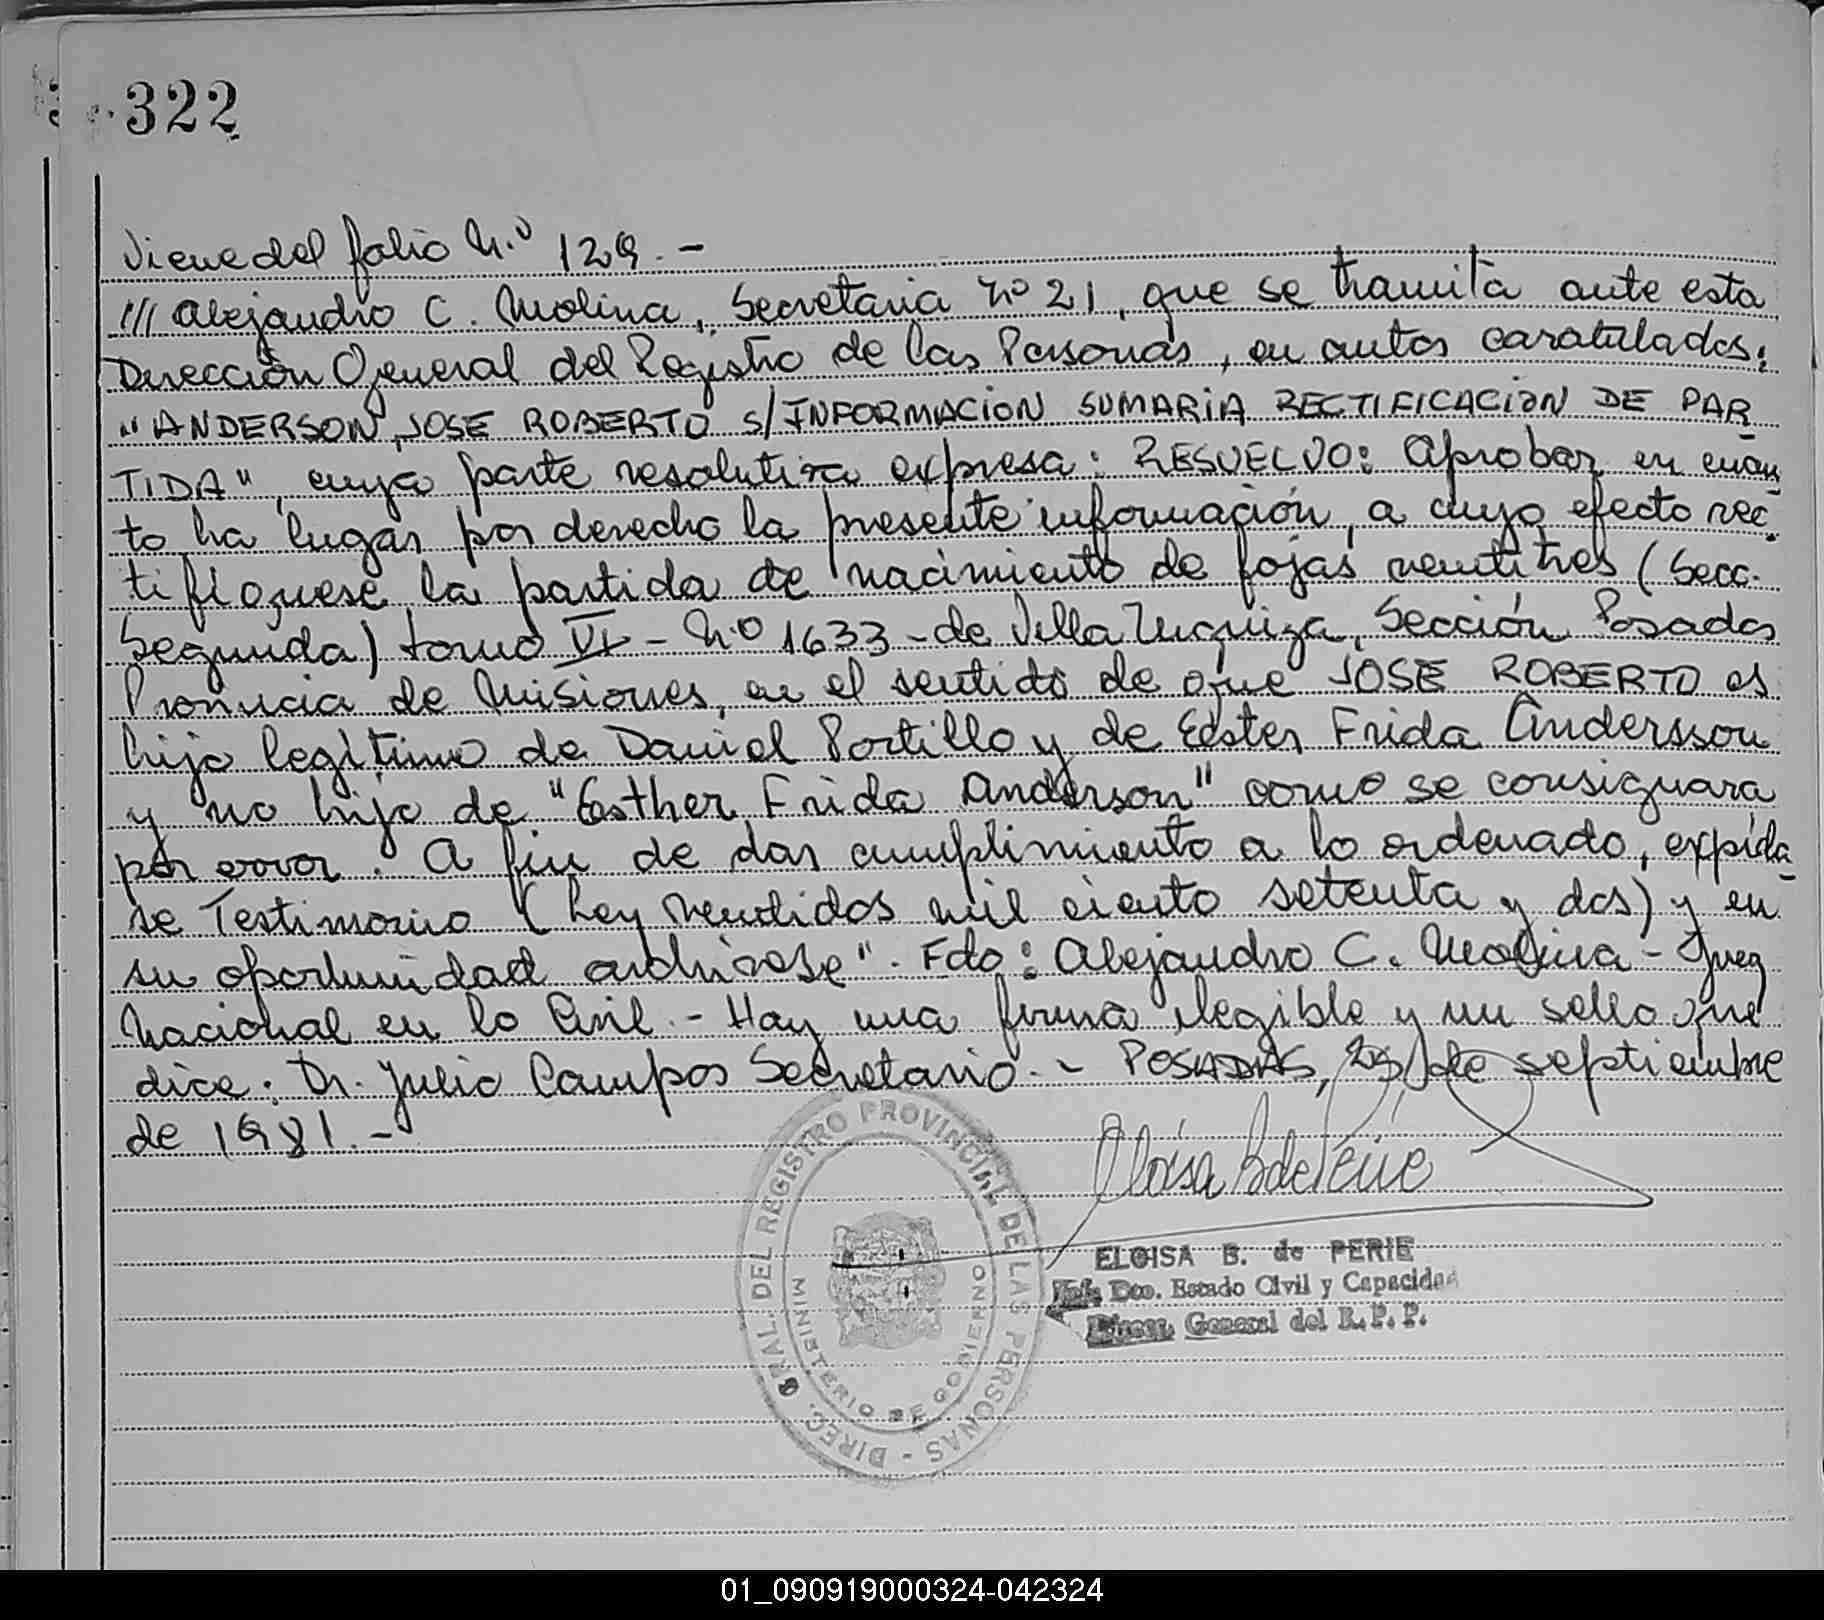 322
Viene del folio N.º 129.-
/// Alejandro C. Molina, Secretaria Nº 21, que se tramita ante esta
Dirección General del Registro de las Personas, en autos caratulados:
"ANDERSON, JOSE ROBERTO S/INFORMACION SUMARIA RECTIFICACION DE PAR
TIDA", cuya parte resolutiva expresa: RESUELVO: Aprobar en cuan
to ha lugar por derecho la presente información, a cuyo efecto rec
tifíquese la partida de nacimiento de fojas veintitres (Secc.
Segunda) tomo VI - N.º 1633 - de Villa Urquiza, Sección Posadas
Provincia de Misiones, en el sentido de que JOSE ROBERTO es
hijo legítimo de Daniel Portillo y de Ester Frida Andersson
y no hijo de "Esther Frida Anderson" como se consignara
por error. A fin de dar cumplimiento a lo ordenado, expída
se Testimonio (ley veintidos mil ciento setenta y dos) y en
su oportunidad archivese". Fdo: Alejandro C. Molina - Juez
Nacional en lo Civil.- Hay una firma ilegible y un sello que
dice: Dr. Julio Campos Secretario.- POSADAS, de septiembre
de 1981.-
Eloisa B de Perie
ELOISA B. de PERIE
Jefe Dto. Estado Civil y Capacidad
Direcc. General del R. P. P.
DIREC. GRAL. DEL REGISTRO PROVINCIAL DE LAS PERSONAS -
MINISTERIO DE GOBIERNO
01_090919000324-042324